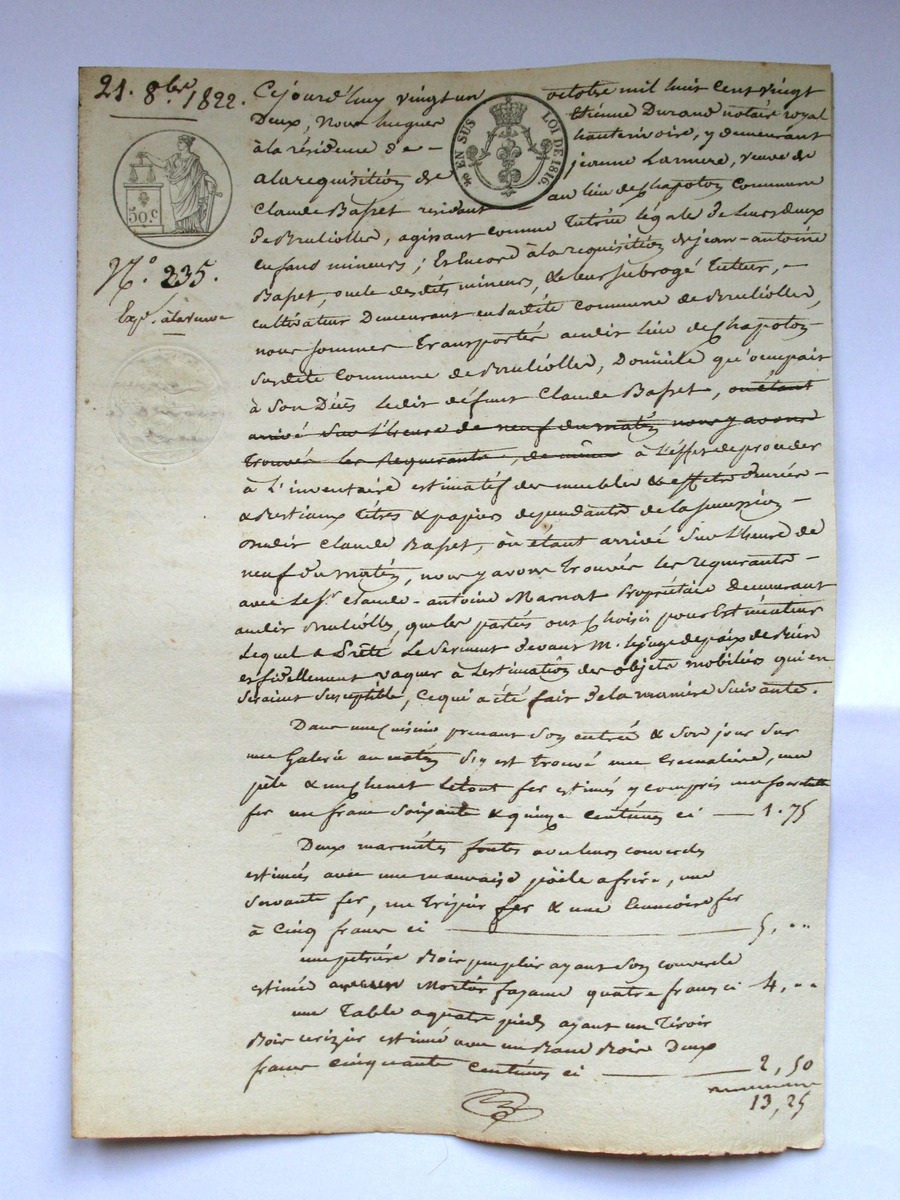 21. 8.bre 1822.
50.c
N.o 235.
Exp.n à la veuve
EN SUS LOI DE 1816
Cejourd'huy vingt un octobre mil huit cent vingt
Deux, Nous Etienne Durand notaire royal
à la résidence de hauterivoire, y demeurant
a la requisition de jeanne Larmure, veuve de
Claude Basset résidant au lieu de Chapoton Commune
de Brullioles, agissant comme tutrice légale de leurs deux
enfans mineurs; Et Encore à la requisition de jean-antoine
Basset, oncle desdits mineurs, & leur subrogé tuteur,
cultivateur Demeurant en ladite commune de Brullioles,
nous sommes Transportés audit lieu de Chapoton
susdite Commune de Brullioles, Domicile qu'occupait
à son Décès ledit défunt Claude Basset, où étant
arrivé sur l'heure de neuf du matin nous y avons
trouvés les Requérants, de même à l'effet de procéder
à L'inventaire estimatif des meubles & effets Denrées
& Bestiaux titres & papiers dépendants de la succession
dudit Claude Basset, où étant arrivé sur l'heure de
neuf du matin, nous y avons trouvés les requérants
avec le Sr. Claude-antoine Marnat Propriétaire demeurant
audit Brullioles, que les parties ont Choisi pour Estimateur
Lequel a Prêté Le Serment devant M. le juge de paix de
et fidellement vaquer à l'estimation des objets mobiliers qui en
seraint susceptible, Ce qui a été fait de la manière suivante.
Dans une Cuisine prenant son entrée & son jour sur
une Galerie au matin s'y est trouvé une Cremalière, une
pèle & un chenet le tout fer estimés y compris une
fer un franc soixante & quinze centimes ci — 1.75
Deux marmites fontes avec leurs couvercles
estimés avec une mauvaise poële a frire, une
servante fer, un trepier fer & une Ecumoire fer
à Cinq francs ci — 5, ..
une petrière Bois peuplier ayant son couvercle
estimée Mortier fayance quatre francs ci 4, ..
une Table a quatre pieds ayant un tiroir
Bois cerizier estimée avec un Banc Bois Deux
francs cinquante centimes ci — 2,50
13,25